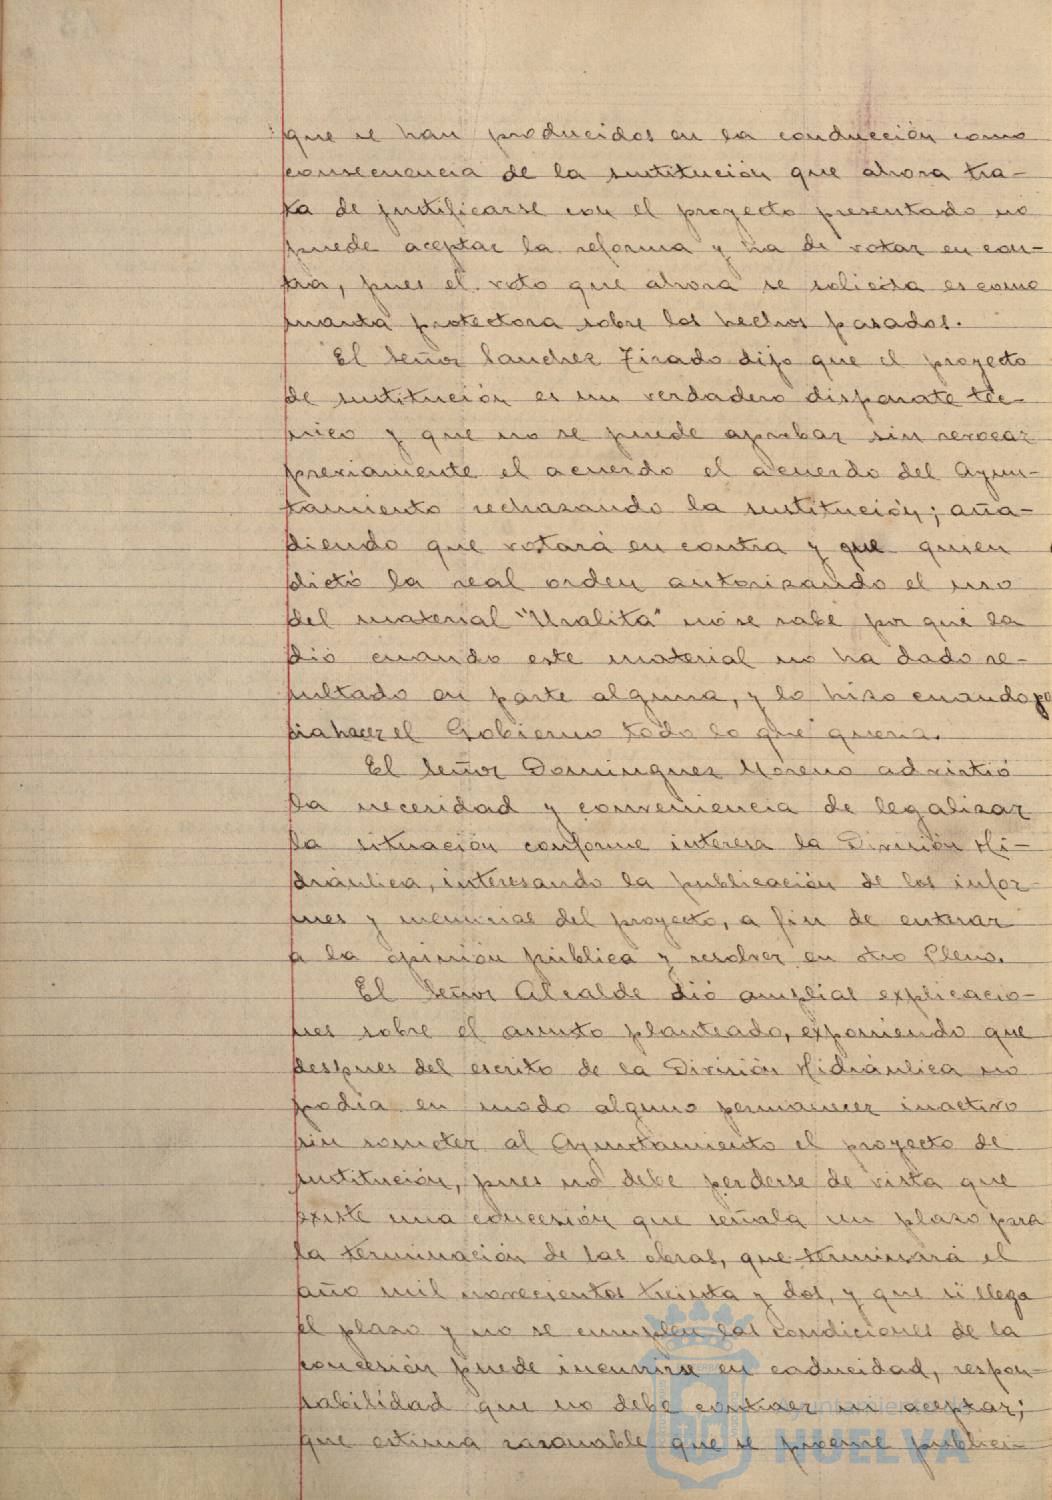 que se han producidos en la conducción como
consecuencia de la sustitución que ahora tra-
ta de justificarse con el proyecto presentado no
puede aceptar la reforma y ha de votar en con-
tra, pues el voto que ahora se solicita es como
manta protectora sobre los hechos pasados.
El Señor Sanchez Tirado dijo que el proyecto
de sustitución es un verdadero disparate téc-
nico y que no se puede aprobar sin revocar
previamente el acuerdo el acuerdo del Ayun-
tamiento rechazando la sustitución; aña-
diendo que votará en contra y que quien
dictó la real orden autorizando el uso
del material "Uralita" no se sabe por qué la
dió cuando este material no ha dado re-
sultado en parte alguna, y lo hizo cuando po
dia hacer el Gobierno todo lo que queria.
El Señor Dominguez Moreno advirtió
la necesidad y conveniencia de legalizar
la situación conforme interesa la División Hi-
dráulica, interesando la publicación de los infor-
mes y memorias del proyecto, a fin de enterar
a la opinión pública y resolver en otro Pleno.
El Señor Alcalde dió amplias explicacio-
nes sobre el asunto planteado, exponiendo que
despues del escrito de la División Hidráulica no
podia en modo alguno permanecer inactivo
sin someter al Ayuntamiento el proyecto de
sustitución, pues no debe perderse de vista que
existe una concesión que señala un plazo para
la terminación de las obras, que terminará el
año mil novecientos treinta y dos, y que si llega
el plazo y no se cumplen las condiciones de la
concesión puede incurrirse en caducidad, respon-
sabilidad que no debe contraer ni aceptar;
que estima razonable que se procure publici-
Ayuntamiento de
HUELVA